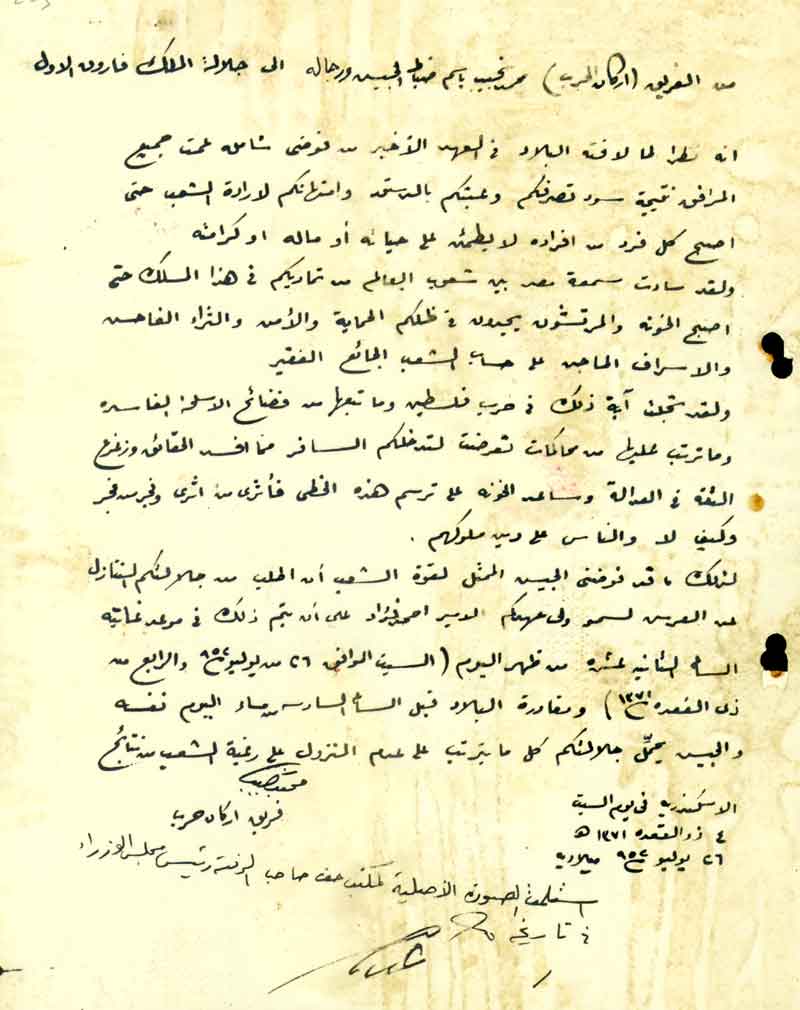 من الفريق (اركان الحرب) محمد نجيب باسم ضباط الجيش ورجاله الى جلالة الملك فاروق الاول
انه نظرا لما لاقته البلاد في العهد الأخير من فوضى شاملة عمت جميع
المرافق نتيجة سوء تصرفكم وعبثكم بالدستور وامتهانكم لارادة الشعب حتى
اصبح كل فرد من افراده لا يطمئن على حياته أو ماله او كرامته
ولقد ساءت سمعة مصر بين شعوب العالم من تماديكم في هذا المسلك حتى
اصبح الخونه والمرتشون يجدون في ظلكم الحماية والأمن والثراء الفاحش
والاسراف الماجن على حساب الشعب الجائع الفقير
ولقد تجلت آية ذلك في حرب فلسطين وما تبعها من فضائح الاسلحة الفاسده
وما ترتب عليها من محاكمات تعرضت لتدخلكم السافر مما افسد الحقائق وزعزع
الثقة في العدالة وساعد الخونه على ترسم هذه الخطى فأثرى من اثرى وفجر من فجر
وكيف لا والناس على دين ملوكهم .
لذلك قد فوضنى الجيش الممثل لقوة الشعب أن اطلب من جلالتكم التنازل
عن العرش لسمو ولى عهدكم الامير احمد فؤاد على أن يتم ذلك في موعد غايته
الساعة الثانية عشره من ظهر اليوم (السبت الموافق ٢٦ من يوليو ١٩٥٢ والرابع من
ذى القعده ١٣٧١) ومغادرة البلاد قبل الساعة السادسه من مساء اليوم نفسه
والجيش يحمل جلالتكم كل ما يترتب على عدم النزول على رغبة الشعب من نتائج
محمد نجيب
فريق اركان حرب
الاسكندريه في يوم السبت
٤ ذو القعده ١٣٧١ هـ
٢٦ يوليو ١٩٥٢ ميلاديه
استلمت الصورة الأصلية لمكتب حضرة صاحب الرفعة رئيس مجلس الوزراء
في تاريخه